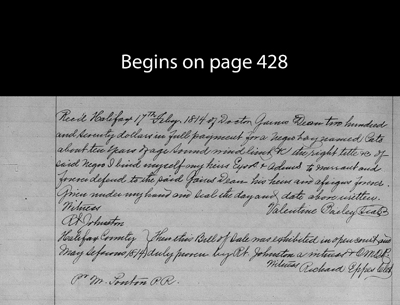 Begins on page 428
Rec'd Halifax 17th Feby. 1814 of Doctor Gaines Dean two hundred
and seventy dollars in full payment for a Negro boy named Cato
about ten years of age sound mind limb &c the right title &c of
said Negro I bind myself my heirs Exors & admrs to warrant and
forever defend to the said Gaines Dean his heirs and assigns forever.
Given under my hand and seal the day and date above written.
Witness Valentine Pasley Seal
R. Johnston
Halifax County Then this Bill of Sale was exhibited in open court
May Sessions 1814 duly proven by R. Johnston a witness &
Witness Richard Eppes Clk
Pr. M. Ponton P.R.